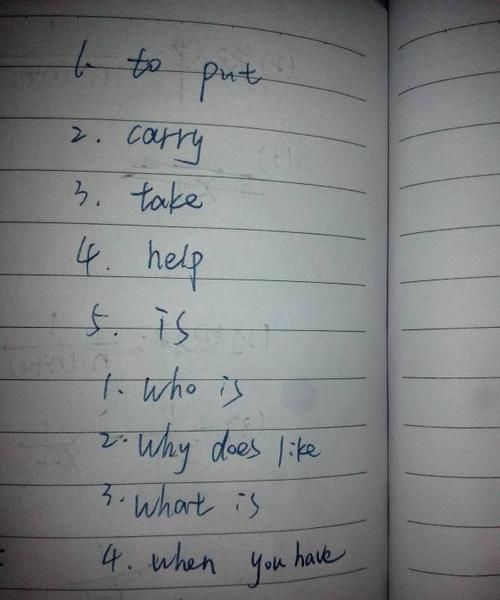 1. to put
2. carry
3. take
4. help
5. is
1. Who is
2. Why does like
3. What is
4. when you have